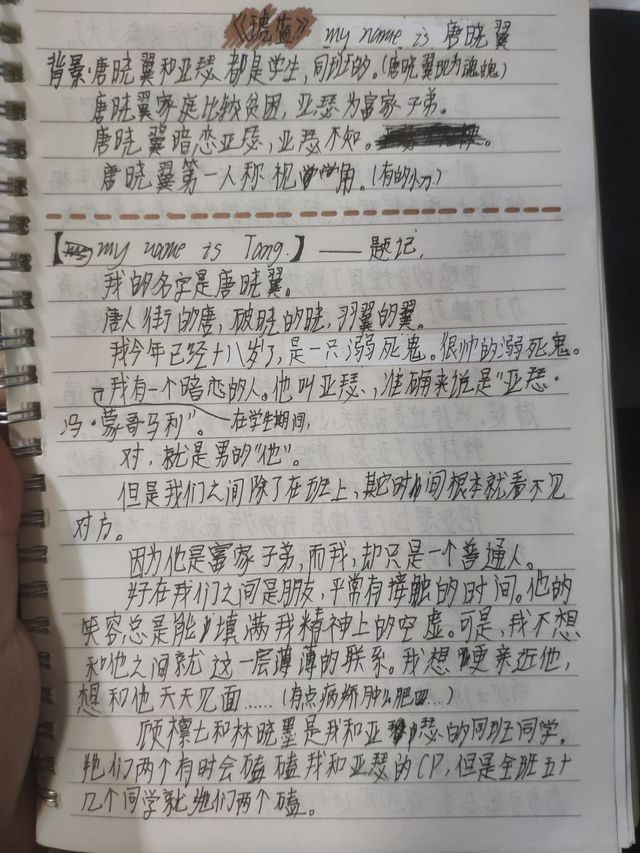 《琥蓝》 my name is 唐晓翼
背景·唐晓翼和亚瑟都是学生,同班的。(唐晓翼现为魂魄)
唐晓翼家庭比较贫困,亚瑟为富家子弟。
唐晓翼暗恋亚瑟,亚瑟不知。
唐晓翼第一人称视角。(有的小刀)
【my name is Tang.】——题记.
我的名字是唐晓翼。
唐人街的唐,破晓的晓,羽翼的翼。
我今年已经十八岁了,是一只溺死鬼。很帅的溺死鬼。
我有一个暗恋的人。他叫亚瑟,准确来说是“亚瑟·
冯·蒙哥马利”。 在学生期间,
对,就是男的“他”。
但是我们之间除了在班上,其它时间根本就看不见
对方。
因为他是富家子弟,而我,却只是一个普通人。
好在我们之间是朋友,平常有接触的时间。他的
笑容总是能填满我精神上的空虚。可是,我不想
和他之间就这一层薄薄的联系。我想更亲近他,
想和他天天见面……(有点病娇肿么肥四…)
顾檩土和林晓墨是我和亚瑟的同班同学。
她们两个有时会磕磕我和亚瑟的CP,但是全班五十
几个同学就她们两个磕。